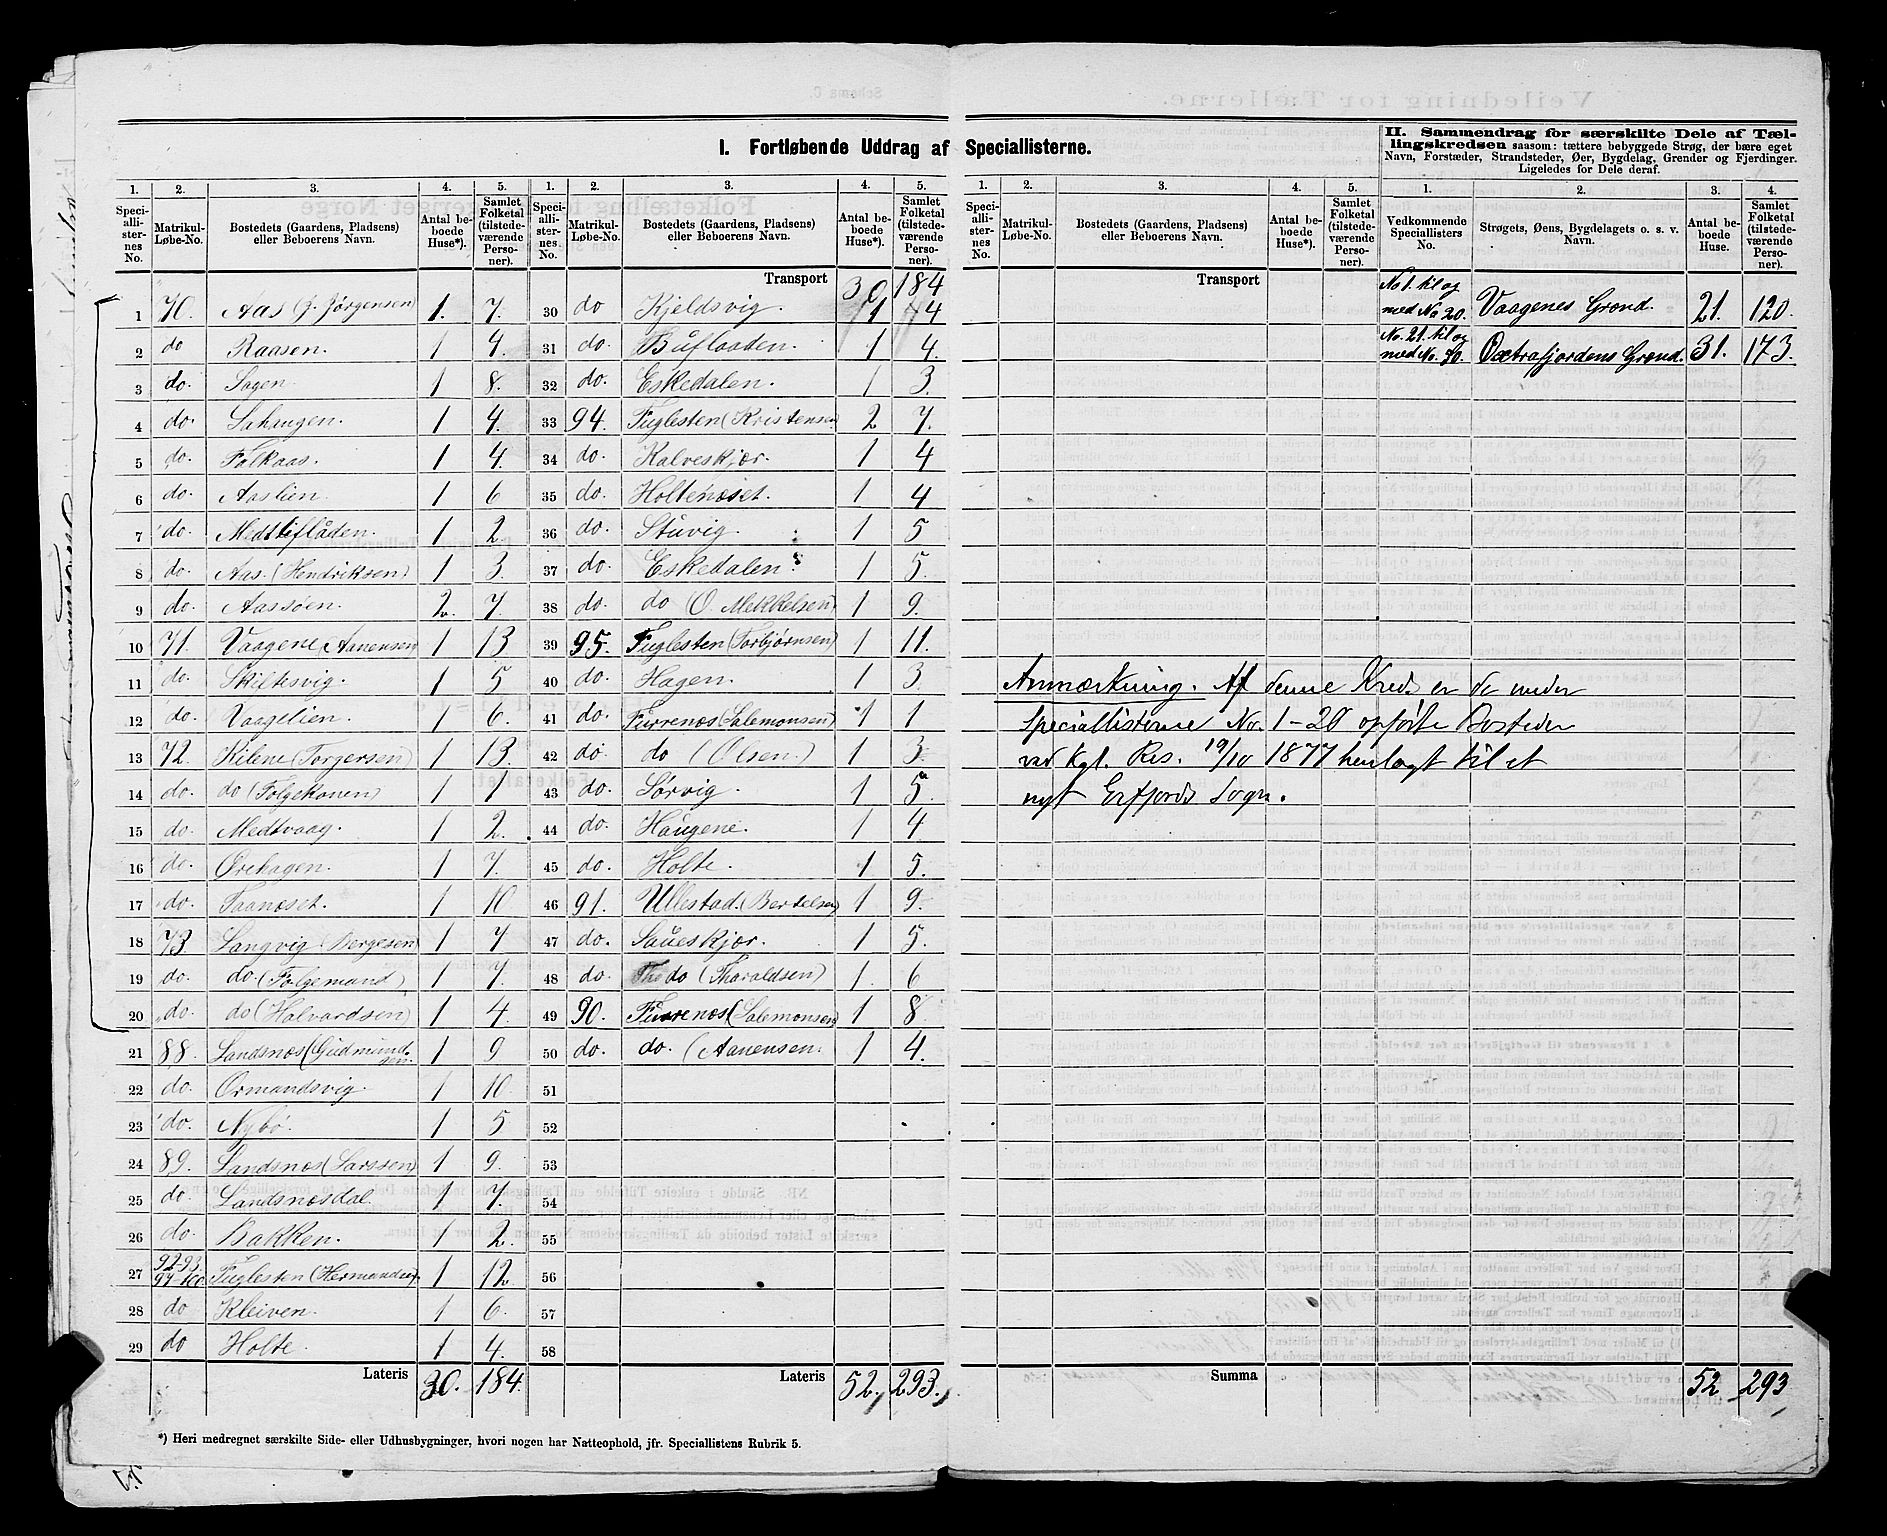 I. Fortløbende Uddrag af Speciallisterne.
II. Sammendrag for særskilte Dele af Tællingskredsen saasom: tættere bebyggede Strøg, der bære eget
Navn, Forstæder, Strandsteder, Øer, Bygdelag, Grender og Fjerdinger.
Ligeledes for Dele deraf.
1. 2. 3. 4. 5. 1. 2. 3. 4. 5.
Speciallisternes No. Matrikul-Løbe-No. Bostedets (Gaardens, Pladsens) eller Beboerens Navn. Antal beboede Huse*). Samlet Folketal (tilstedeværende Personer).
Speciallisternes No. Matrikul-Løbe-No. Bostedets (Gaardens, Pladsens) eller Beboerens Navn. Antal beboede Huse*). Samlet Folketal (tilstedeværende Personer).
1 70. Aas (J. Jørgensen 1. 7.
2 do Raasen. 1 4.
3 do. Sagen. 1 8.
4 do. Sahaugen. 1 4.
5 do. Falkaas. 1 4.
6 do. Aaslien. 1 6
7 do. Medtliflåden. 1 2.
8 do. Aas. (Hendriksen) 1 3.
9 do. Aassøen. 2. 7.
10 71. Vaagene (Aanensen 1 13
11 do. Skiftesvig. 1 5
12 do. Vaagelien. 1 6.
13 72. Kilene (Torgersen) 1 13.
14 do. do (Følgekonen) 1 1
15 do. Medtvaag. 1 2.
16 do. Ørehagen. 1 7.
17 do. Taanæset. 1 10
18 73. Langvig (Bergesen) 1 7
19 do. do. (Følgemand) 1 7.
20 do. do (Halvardsen) 1 4.
21 88. Landsnæs (Gudmundsen. 1 9
22 do. Ormandsvig. 1 10.
23 do. Nybø. 1 5
24 89. Landsnæs (Larssen) 1 9.
25 do. Landsnæsdal. 1 7.
26 do. Bakken. 1 2.
27 92-93. 97-100. Fuglesten (Hermandsen. 1 12
28 do Kleiven. 1 6.
29 do Holte. 1 4.
Lateris 30. 184.
Transport 30 184
30 do Kjeldsvig. 1 4
31 do. Bufladen. 1 4.
32 do. Eskedalen. 1 3.
33 94. Fuglesten (Kristensen) 2 7.
34 do. Kalveskjær. 1 4
35 do. Holtenæset. 1 4
36 do. Stuvig. 1 5
37 do. Eskedalen. 1 5.
38 do. do (O. Mekkelsen) 1 9.
39 95. Fuglesten (Torbjørnsen) 1 11.
40 do. Hagen. 1 3.
41 do. Furrenæs (Salemonsen) 1 1
42 do do (Olsen.) 1 3.
43 do. Sørvig. 1 5.
44 do. Haugene. 1 4
45 do. Holte. 1 5.
46 91. Ullestad. (Bertelsen) 1 9.
47 do. Saueskjær. 1 5.
48 do. do (Tharaldsen) 1. 6
49 90. Furrenæs (Salemonsen) 1 8.
50 do. do. (Aanensen. 1 4.
51
52
53
54
55
56
57
58
Lateris 52. 293.
*) Heri medregnet særskilte Side- eller Udhusbygninger, hvori nogen har Natteophold, jfr. Speciallistens Rubrik 5.
1. 2. 3. 4. 5. 1. 2. 3. 4.
Speciallisternes No. Matrikul-Løbe-No. Bostedets (Gaardens, Pladsens) eller Beboerens Navn. Antal beboede Huse*). Samlet Folketal (tilstedeværende Personer).
Vedkommende Speciallisters No. Strøgets, Øens, Bygdelagets o. s. v. Navn. Antal beboede Huse. Samlet Folketal (tilstedeværende Personer).
Transport
No 1. til og med No 20. Vaagenes Grend. 21. 120.
No. 21. til og med No. 50. Østrafjordens Grend. 31. 173.
Anmærkning. Af denne Kreds er de under
Speciallisterne No. 1-20 opførte Bosteder
ved Kgl. Res. 19/10 1877 henlagt til et
nyt Erfjords Sogn.
Summa 52 293